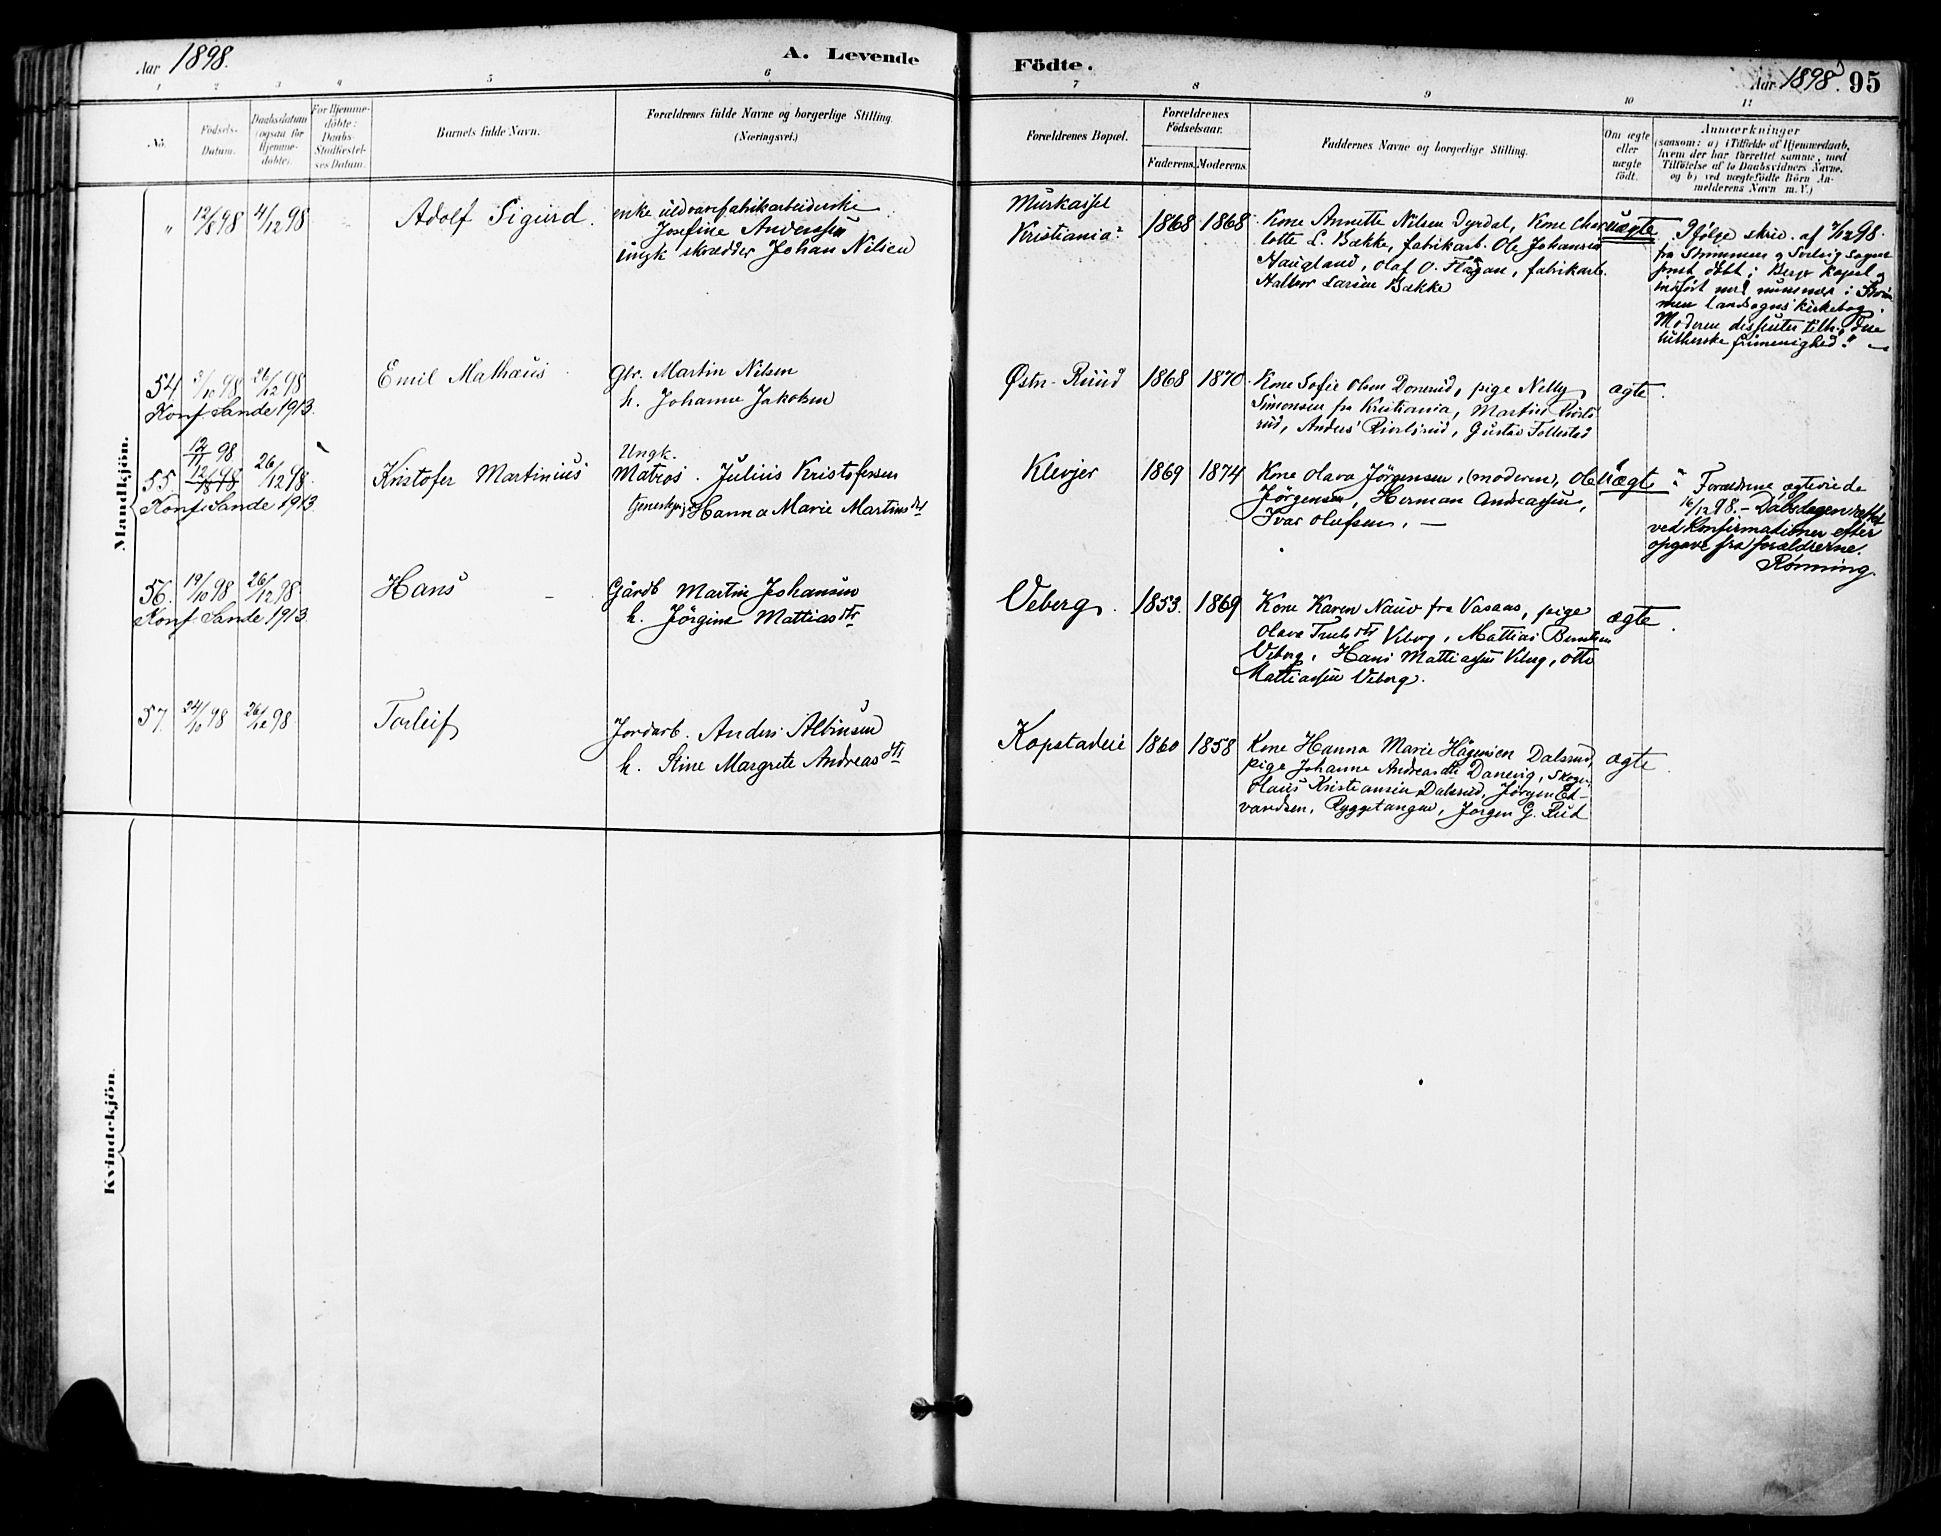 Aar 1898.
A. Levende
Födte.
Aar 1898. 95
1 2 3 4 5 6 7 8 9 10 11
No.
Födsels-
Datum.
Daabsdatum
(ogsaa for
Hjemme-
döbte).
For Hjemme-
döbte:
Daabs-
Stadfæstel-
ses Datum.
Barnets fulde Navn.
Forældrenes fulde Navne og borgerlige Stilling.
(Næringsvei.)
Forældrenes Bopæl.
Forældrenes
Födselsaar.
Faderens. Moderens.
Faddernes Navne og borgerlige Stilling.
Om ægte
eller
uægte
födt.
Anmærkninger
(saasom: a) i Tilfælde af Hjemmedaab,
hvem der har forrettet samme, med
Tilföielse af to Daabsvidners Navne,
og b) ved uægtefödte Börn An-
melderens Navn m. V.)
Mandkjön.
" 12/8 98 4/12 98 Adolf Sigurd.
enke uldvarefabrikarbeiderske
Josefine Anderssen
ungk skrædder Johan Nilsen
Murkassel
Kristiania?
1868 1868
Kone Annette Nilsen Dyrdal, Kone Char
lotte L. Bække, fabrikarb. Ole Johansen
Haugland, Olaf O. Flågan, fabrikarb.
Halvor Larsen Bække
uægte
Ifølge skriv. af 98
fra Strømmen og sogne
prest døbt i Berger kapel og
indført med nummer i
men landsogns kirkebog.
Moderen dissenter tilh. "Den
lutherske frimenighed".
54 3/10 98 26/12 98 Emil Mathæus
Konf. Sande 1913.
Gbr. Martin Nilsen
h. Johanne Jakobsen
Østn-Ruud 1868 1870
Kone Sofie Olsen pige Nelly
Simonsen fra Kristiania, Martin
rud, Anders Gustav Tollestad
ægte.
12/11 98
55 12/8 98 26/12 98. Kristofer Martinius
Konf. Sande 1913.
Ungk.
Matros. Julius Kristofersen
tjenestepige Hanna Marie Martinsdtr
Klevjer 1869 1874
Kone Olava Jørgensen, (moderen), Ole
Jørgensen, Herman Andreassen,
Ivar Olufsen.
uægte
" Forældrene ægteviede
16/12 98. - Dåbsdagen rettet
ved konfirmationen efter
opgave fra forældrene.
Rønning.
56. 19/10 98 26/12 98 Hans
Konf. Sande 1913.
Gårdb Martin Johansen
h. Jørgine Mattiasdtr
Veberg. 1853. 1869
Kone Karen Nauv fra Vasaas, pige
Olava Truls dtr Veberg, Mattias Berntsen
Veberg, Hans Mattiassen Veberg, Otto
Mattiassen Veberg.
ægte.
57. 24/10 98 26/12 98 Torleif
Jordarb. Anders Albinsen
h. Stine Margrete Andreasdtr
Kopstadeie 1860 1858
Kone Hanna Marie Hågensen Dalsrud,
pige Johanne Andreasdtr Danevig, Skoger
Olaus Kristiansen Dalsrud, Jørgen Ed-
vardsen, Ryggetangen, Jørgen G. Rud
ægte.
Kvindekjön.